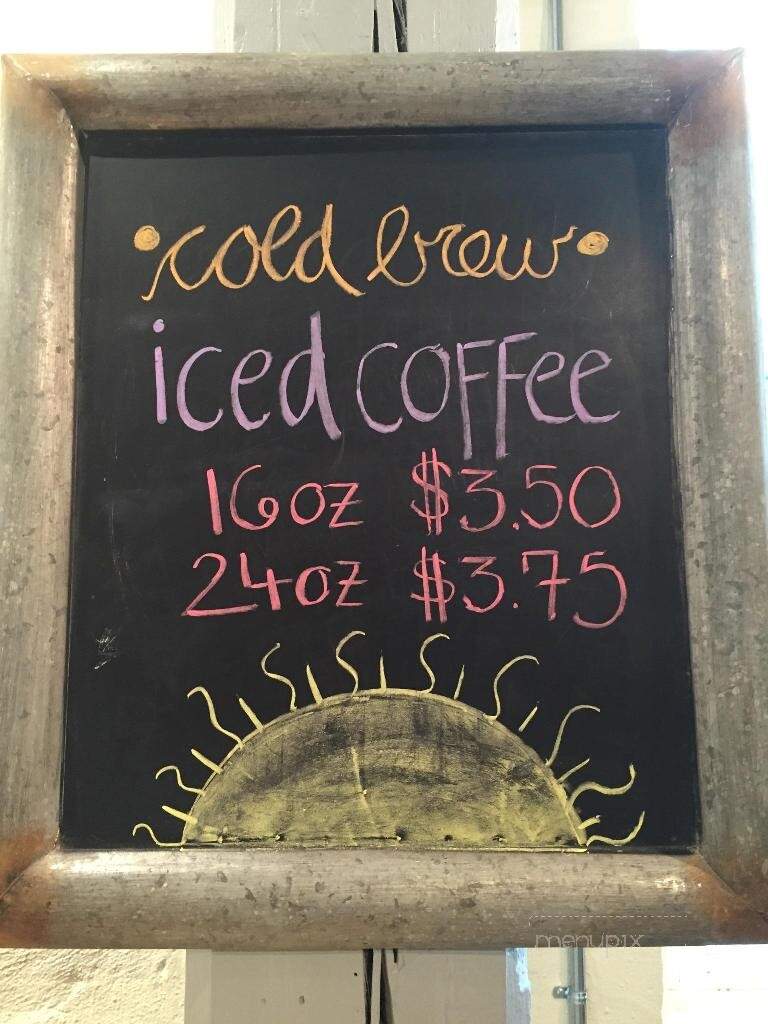 •cold brew•
iced coffee
16oz $3.50
24oz $3.75
menupix